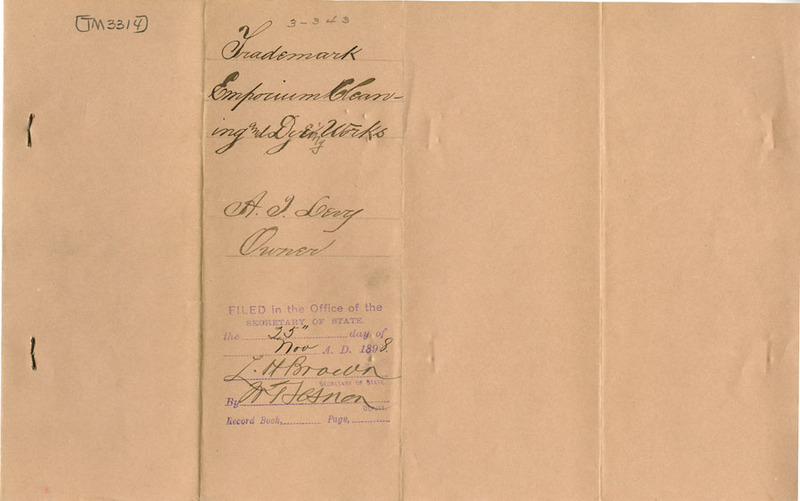 TM3314
3-343
Trademark
Emporium Clean-
ing and Dyeing Works
A. I. Levy
Owner
FILED in the Office of the
SECRETARY OF STATE
the 25" day of
Nov A. D. 1898.
L. H Brown
SECRETARY OF STATE
By
DEPUTY
Record Book, Page,